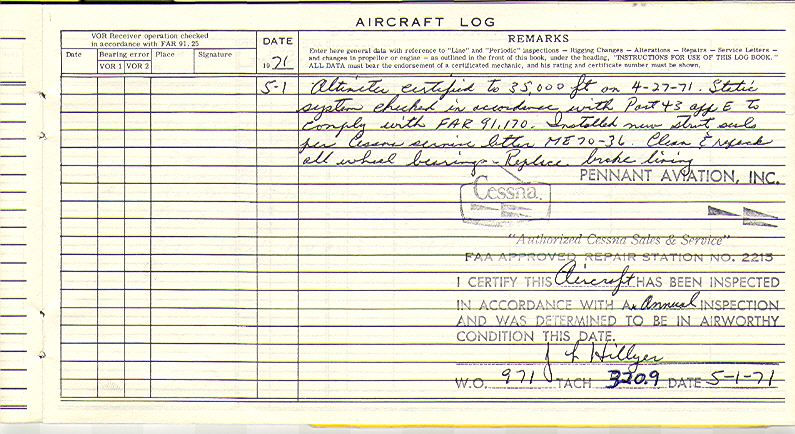 AIRCRAFT LOG
VOR Receiver operation checked
in accordance with FAR 91.25
Date Bearing error Place Signature
VOR 1 VOR 2
DATE
1971
REMARKS
Enter here general data with reference to "Line" and "Periodic" inspections — Rigging Changes — Alterations — Repairs — Service Letters —
and changes in propeller or engine — as outlined in the front of this book, under the heading, "INSTRUCTIONS FOR USE OF THIS LOG BOOK."
ALL DATA must bear the endorsement of a certificated mechanic, and his rating and certificate number must be shown.
5-1 Altimeter certified to 35,000 ft on 4-27-71. Static
system checked in accordance with Part 43 app E to
comply with FAR 91.170. Installed new strut seals
per Cessna service letter ME70-36. Clean & repack
all wheel bearings - Replace brake lining
PENNANT AVIATION, INC.
Cessna
"Authorized Cessna Sales & Service"
FAA APPROVED REPAIR STATION NO. 2213
I CERTIFY THIS Aircraft HAS BEEN INSPECTED
IN ACCORDANCE WITH An Annual INSPECTION
AND WAS DETERMINED TO BE IN AIRWORTHY
CONDITION THIS DATE.
J L Hillyer
W.O. 971 TACH 320.9 DATE 5-1-71